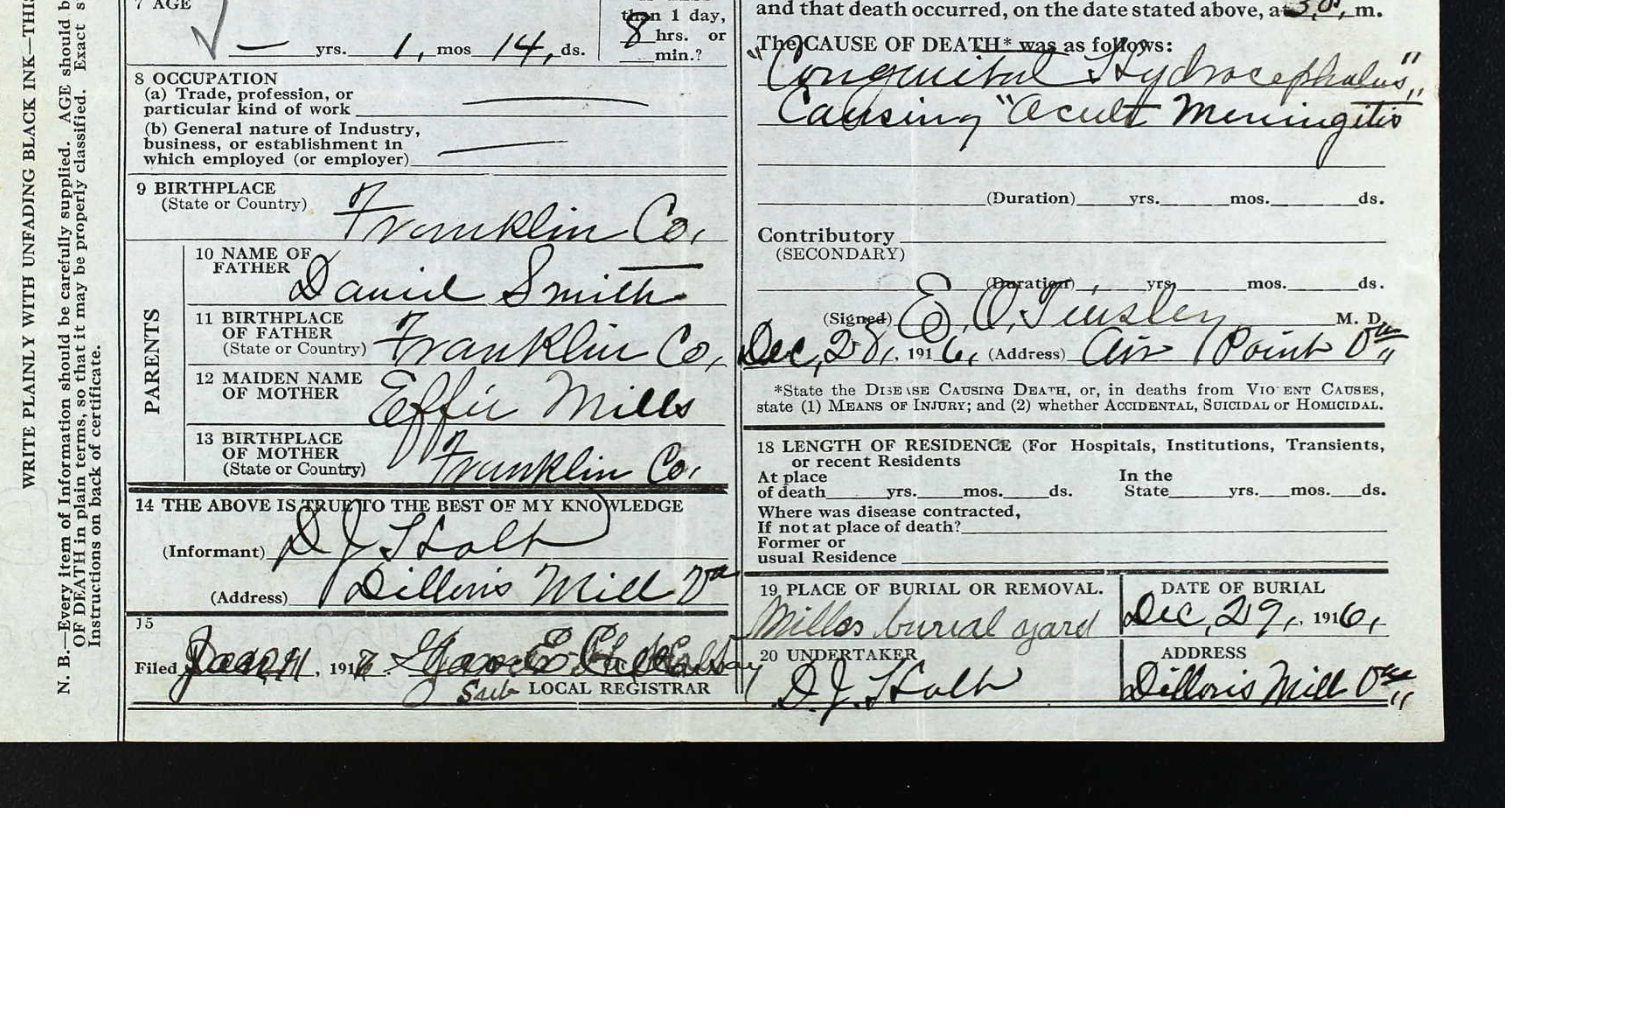 WRITE PLAINLY WITH UNFADING BLACK INK—THIS
N. B.—Every item of Information should be carefully supplied. AGE should b
OF DEATH in plain terms, so that it may be properly classified. Exact s
Instructions on back of certificate.
7 AGE
than 1 day,
— yrs. 1, mos 14, ds. 8 hrs. or
min.?
8 OCCUPATION
(a) Trade, profession, or
particular kind of work
(b) General nature of Industry,
business, or establishment in
which employed (or employer)
9 BIRTHPLACE
(State or Country) Franklin Co,
PARENTS
10 NAME OF
FATHER Daniel Smith
11 BIRTHPLACE
OF FATHER
(State or Country) Franklin Co,
12 MAIDEN NAME
OF MOTHER Effie Mills
13 BIRTHPLACE
OF MOTHER
(State or Country) Franklin Co,
14 THE ABOVE IS TRUE TO THE BEST OF MY KNOWLEDGE
(Informant) D J Holt
(Address) Dillons Mill Va
15
Filed , 191
Sub LOCAL REGISTRAR
and that death occurred, on the date stated above, at 3,0, m.
The CAUSE OF DEATH* was as follows:
"Conguital Hydrocephalus",
Causing "Ocult Meningitis
(Duration) yrs. mos. ds.
Contributory
(SECONDARY)
(Duration) yrs. mos. ds.
(Signed) E. O. Tinsley M. D.
Dec, 28, 1916, (Address) Air Point Va
*State the DISEASE CAUSING DEATH, or, in deaths from VIOLENT CAUSES,
state (1) MEANS OF INJURY; and (2) whether ACCIDENTAL, SUICIDAL or HOMICIDAL.
18 LENGTH OF RESIDENCE (For Hospitals, Institutions, Transients,
or recent Residents
At place In the
of death yrs. mos. ds. State yrs. mos. ds.
Where was disease contracted,
If not at place of death?
Former or
usual Residence
19 PLACE OF BURIAL OR REMOVAL. DATE OF BURIAL
Mills burial yard Dec, 29, 1916,
20 UNDERTAKER ADDRESS
D. J. Holt Dillons Mill Va